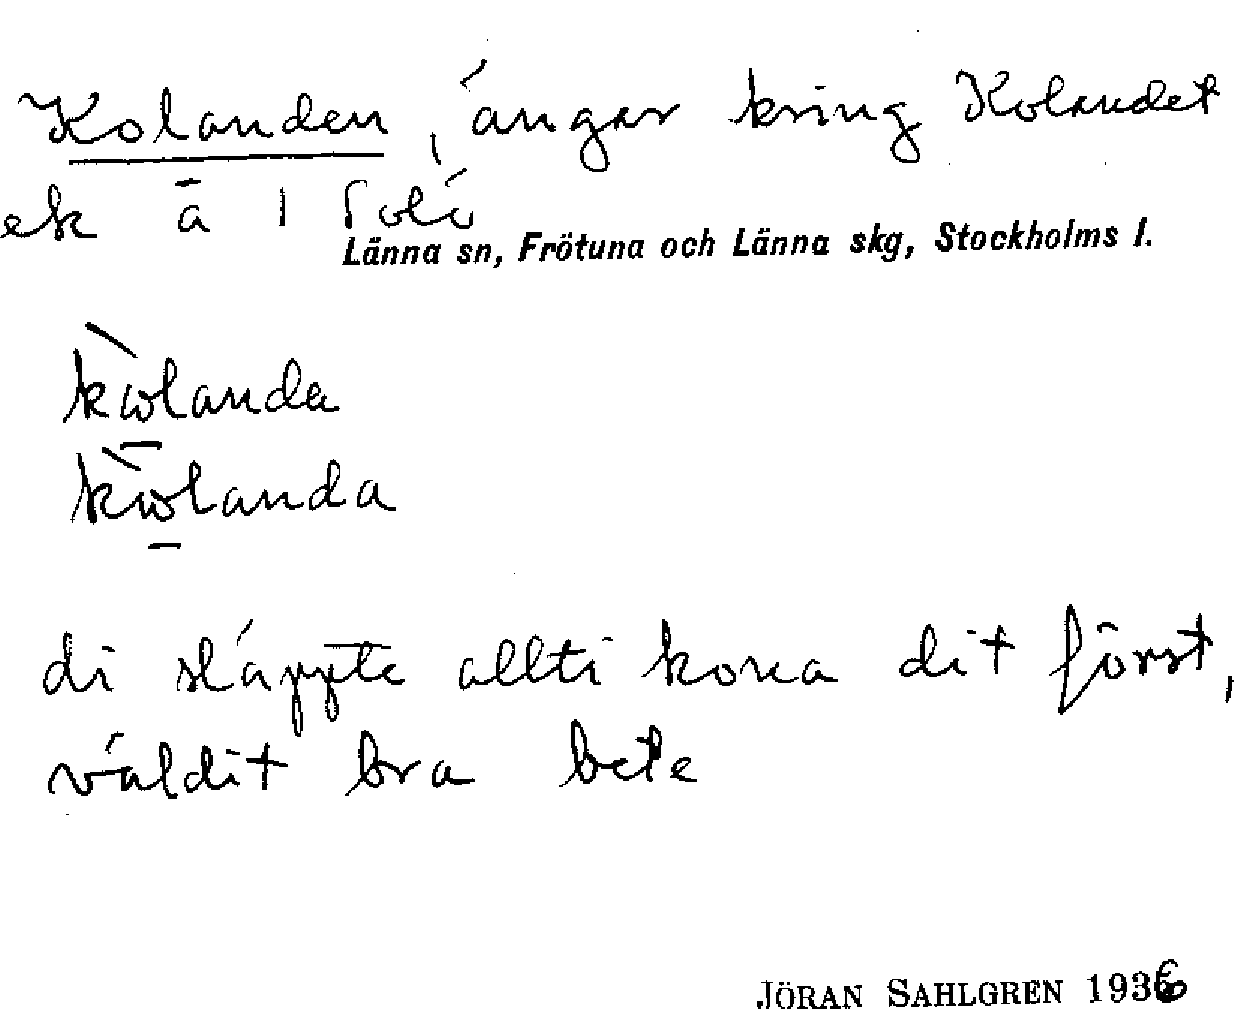 Kolanden, ängar kring Kolandet
ek å 1 Solö
Länna sn, Frötuna och Länna skg, Stockholms l.
kωlanda
kωlanda
di släppte allti kona dit först,
väldit bra bete
JÖRAN SAHLGREN 1936